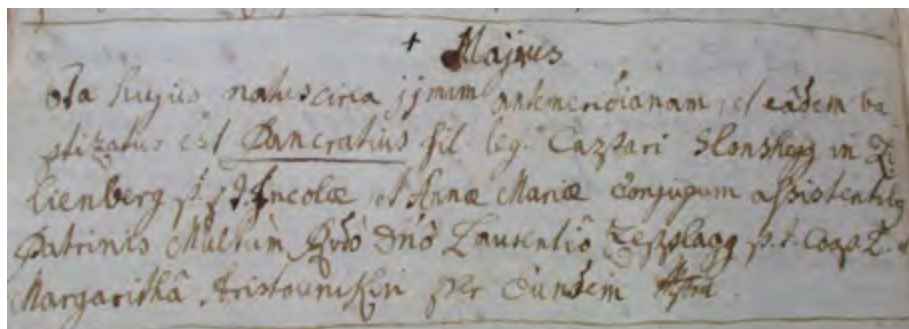 + Majus
8va hujus natus circa jjmam antemeridianam, et eâdem ba
ptizatus est Pancratius fil. leg. Caspari Slonshegg in
lienberg p. t. Incolæ, et Annæ Mariæ Conjugum assistentibq
Patrinis Multùm Rđô Dnô Laurentiô p. t. Coop.
Margarithâ per Eundem